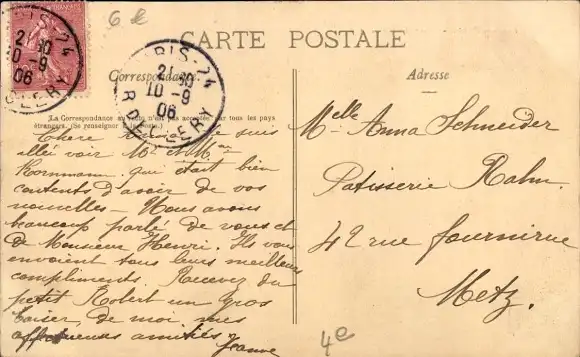 6 e
CARTE POSTALE
Correspondance
Adresse
PARIS-24
21 30
10 -9
06
R DE CLERY
La Correspondance au recto n'est pas acceptée par tous les pays
étrangers. (Se renseigner à la poste.)
Chère je suis
allée voir Mr et Mme
Hornmann qui était bien
contents d'avoir de vos
nouvelles - Nous avons
beaucoup parlé de vous et
de Monsieur Henri. Ils vous
envoient tous leurs meilleurs
compliments. Recevez du
petit Robert un gros
baiser, de moi, mes
affectueuses amitiés
Jeanne
Melle Anna Schneider
Patisserie Rahn.
42 rue fournirue
Metz.
4e